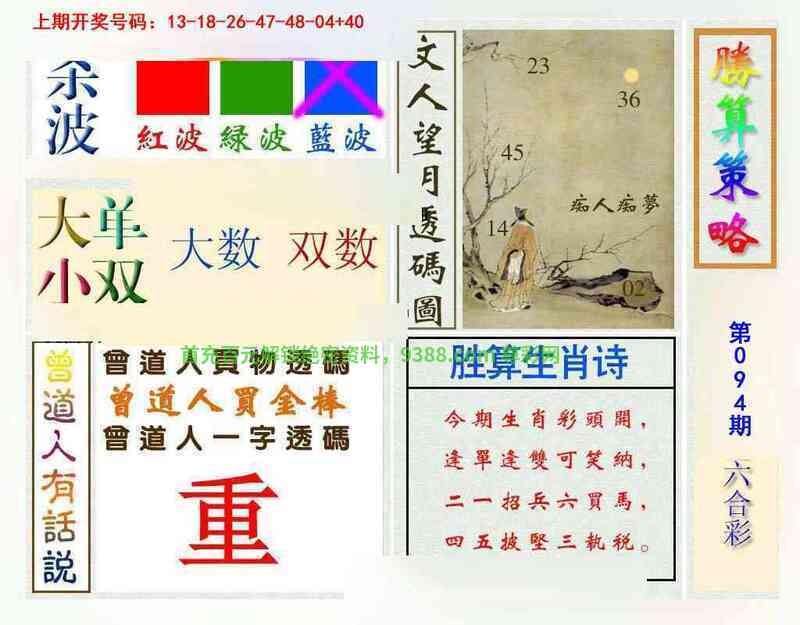 上期开奖号码：13-18-26-47-48-04+40
杀波
紅波 緑波 藍波
大单
小双
大数 双数
文人望月透碼圖
23
36
45
14
02
痴人痴夢
勝算策略
第094期
六合彩
曾道人有話説
曾道人買物透碼
曾道人買金棒
曾道人一字透碼
重
胜算生肖诗
今期生肖彩頭開，
逢單逢雙可笑納，
二一招兵六買馬，
四五披堅三執税。